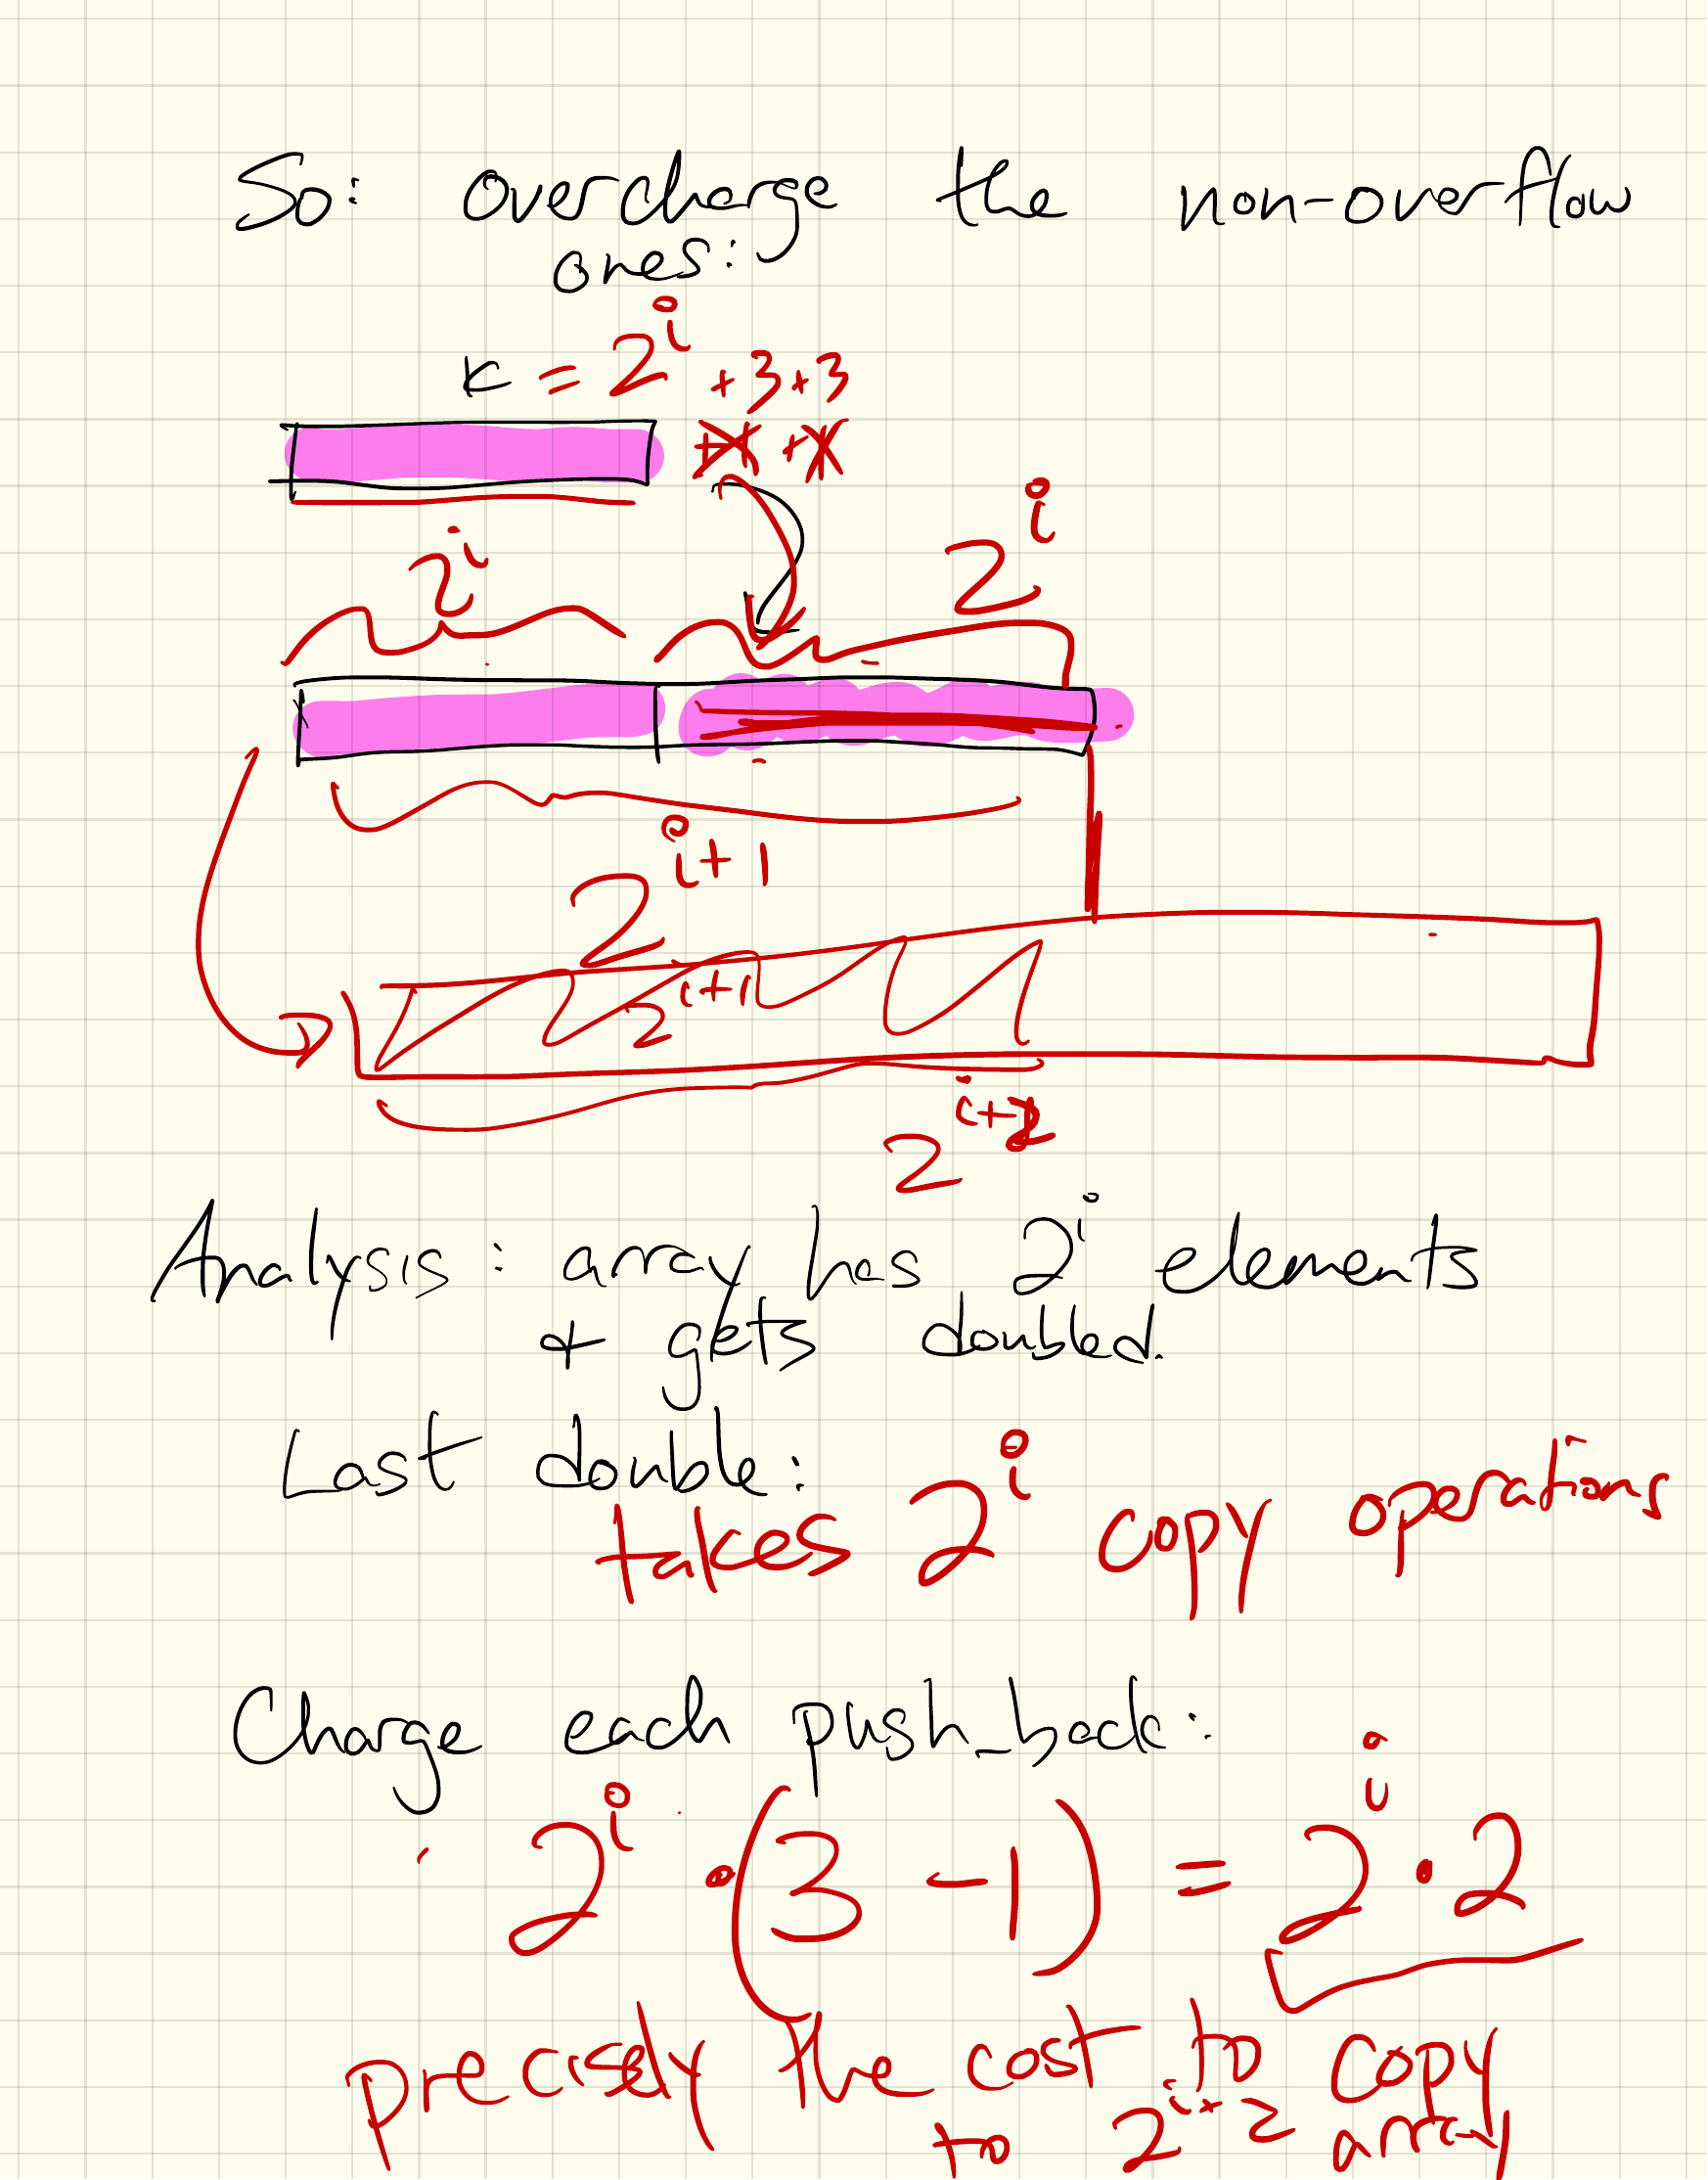 So: overcharge the non-overflow
ones:
k = 2^i +3+3
2^i
2^i
2^(i+1)
2^(i+1)
2^(i+2)
Analysis: array has 2^i elements
+ gets doubled.
Last double:
takes 2^i copy operations
Charge each push_back:
2^i · (3 - 1) = 2^i · 2
precisely the cost to copy
to 2^(i+2) array